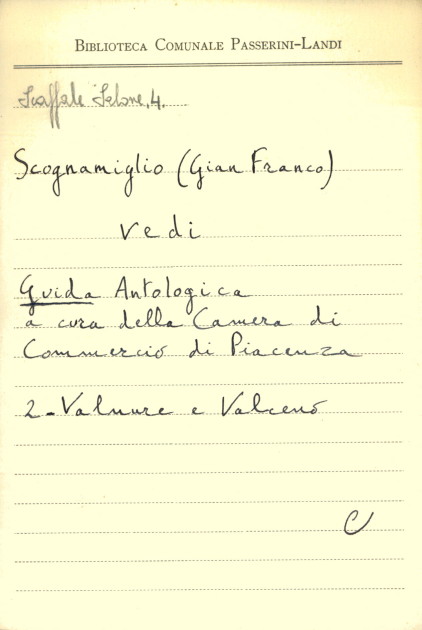 Biblioteca Comunale Passerini-Landi
Scaffale Salone, 4.
Scognamiglio (Gian Franco)
vedi
Guida Antologica
a cura della Camera di
Commercio di Piacenza
2 - Valnure e Valceno
C